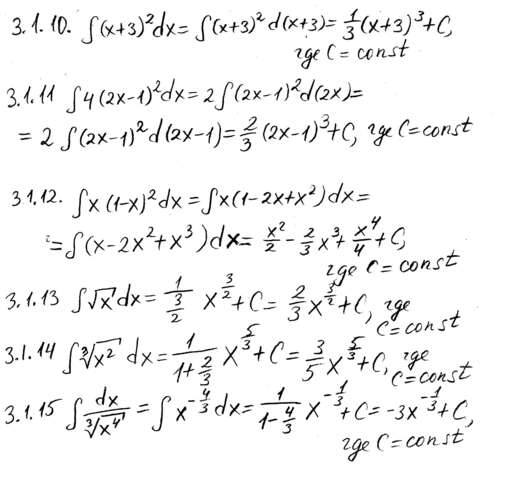 3.1.10. ∫(x+3)²dx = ∫(x+3)² d(x+3) = 1/3 (x+3)³ + C,
где C = const
3.1.11 ∫4(2x-1)²dx = 2∫(2x-1)²d(2x) =
= 2 ∫(2x-1)²d(2x-1) = 2/3 (2x-1)³ + C, где C = const
31.12. ∫x(1-x)²dx = ∫x(1-2x+x²)dx =
= ∫(x-2x²+x³)dx = x²/2 - 2/3 x³ + x⁴/4 + C,
где C = const
3.1.13 ∫√x dx = 1/(3/2) x^(3/2) + C = 2/3 x^(3/2) + C, где
C = const
3.1.14 ∫∛x² dx = 1/(1+2/3) x^(5/3) + C = 3/5 x^(5/3) + C, где
C = const
3.1.15 ∫dx/∛x⁴ = ∫x^(-4/3) dx = 1/(1-4/3) x^(-1/3) + C = -3x^(-1/3) + C,
где C = const